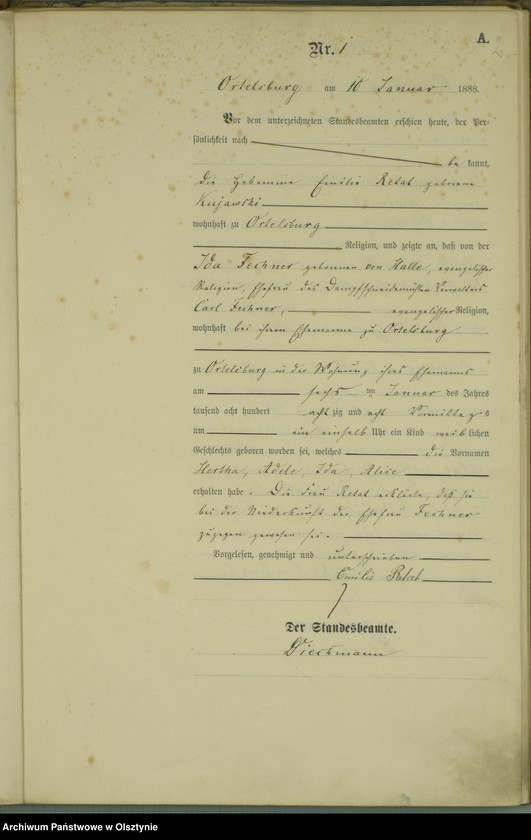 A.
2
Nr. 1
Ortelsburg am 10 Januar 1888.
Vor dem unterzeichneten Standesbeamten erschien heute, der Per-
sönlichkeit nach
be kannt,
die Hebamme Emilie Retat geborene
Kujawski
wohnhaft zu Ortelsburg
Religion, und zeigte an, daß von der
Ida Fechner geborenen von Halle, evangelischer
Religion, Ehefrau des Dampfschneidemühlen Verwalters
Carl Fechner, evangelischer Religion,
wohnhaft bei ihrem Ehemanne zu Ortelsburg
zu Ortelsburg in der Wohnung ihres Ehemannes
am sechs ten Januar des Jahres
tausend acht hundert acht zig und acht Vormittags
um ein einhalb Uhr ein Kind weib lichen
Geschlechts geboren worden sei, welches die Vornamen
Hertha, Adele, Ida, Alice
erhalten habe. Die Frau Retat erklärte, daß sie
bei der Niederkunft der Ehefrau Fechner
zugegen gewesen sei.
Vorgelesen, genehmigt und unterschrieben
Emilie Retat
Der Standesbeamte.
Dieckmann
Archiwum Państwowe w Olsztynie